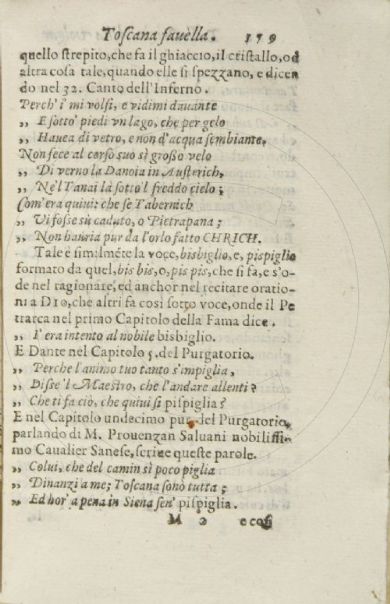 Toscana fauella. 179
quello strepito, che fa il ghiaccio, il cristallo, od
altra cosa tale, quando elle si spezzano, e dicen
do nel 32. Canto dell'Inferno.
Perch' i' mi volsi, e vidimi dauante
„ E sotto' piedi vn lago, che per gelo
„ Hauea di vetro, e non d'acqua sembiante,
Non fece al corso suo sì grosso velo
„ Di verno la Danoia in Austerich,
„ Ne'l Tanai là sotto'l freddo cielo;
Com'era quiui: che se Tabernich
„ Vi fosse sù caduto, o Pietrapana;
„ Non hauria pur da l'orlo fatto CHRICH.
Tale è similmẽte la voce, bisbiglio, e, pispiglio
formato da quel, bis bis, o, pis pis, che si fa, e s'o-
de nel ragionare, ed anchor nel recitare oratio-
ni a DIO, che altri fa così sotto voce, onde il Pe
trarca nel primo Capitolo della Fama dice.
„ I' era intento al nobile bisbiglio.
E Dante nel Capitolo 5. del Purgatorio.
„ Perche l'animo tuo tanto s'impiglia,
„ Disse'l Maestro, che l'andare allenti?
„ Che ti fa ciò, che quiui si pispiglia?
E nel Capitolo undecimo pur del Purgatorio,
parlando di M. Prouenzan Saluani nobilissi-
mo Caualier Sanese, scriue queste parole.
„ Colui, che del camin sì poco piglia
„ Dinanzi a me; Toscana sonò tutta;
„ Ed hor' a pena in Siena sen' pispiglia.
M 2 ecosi